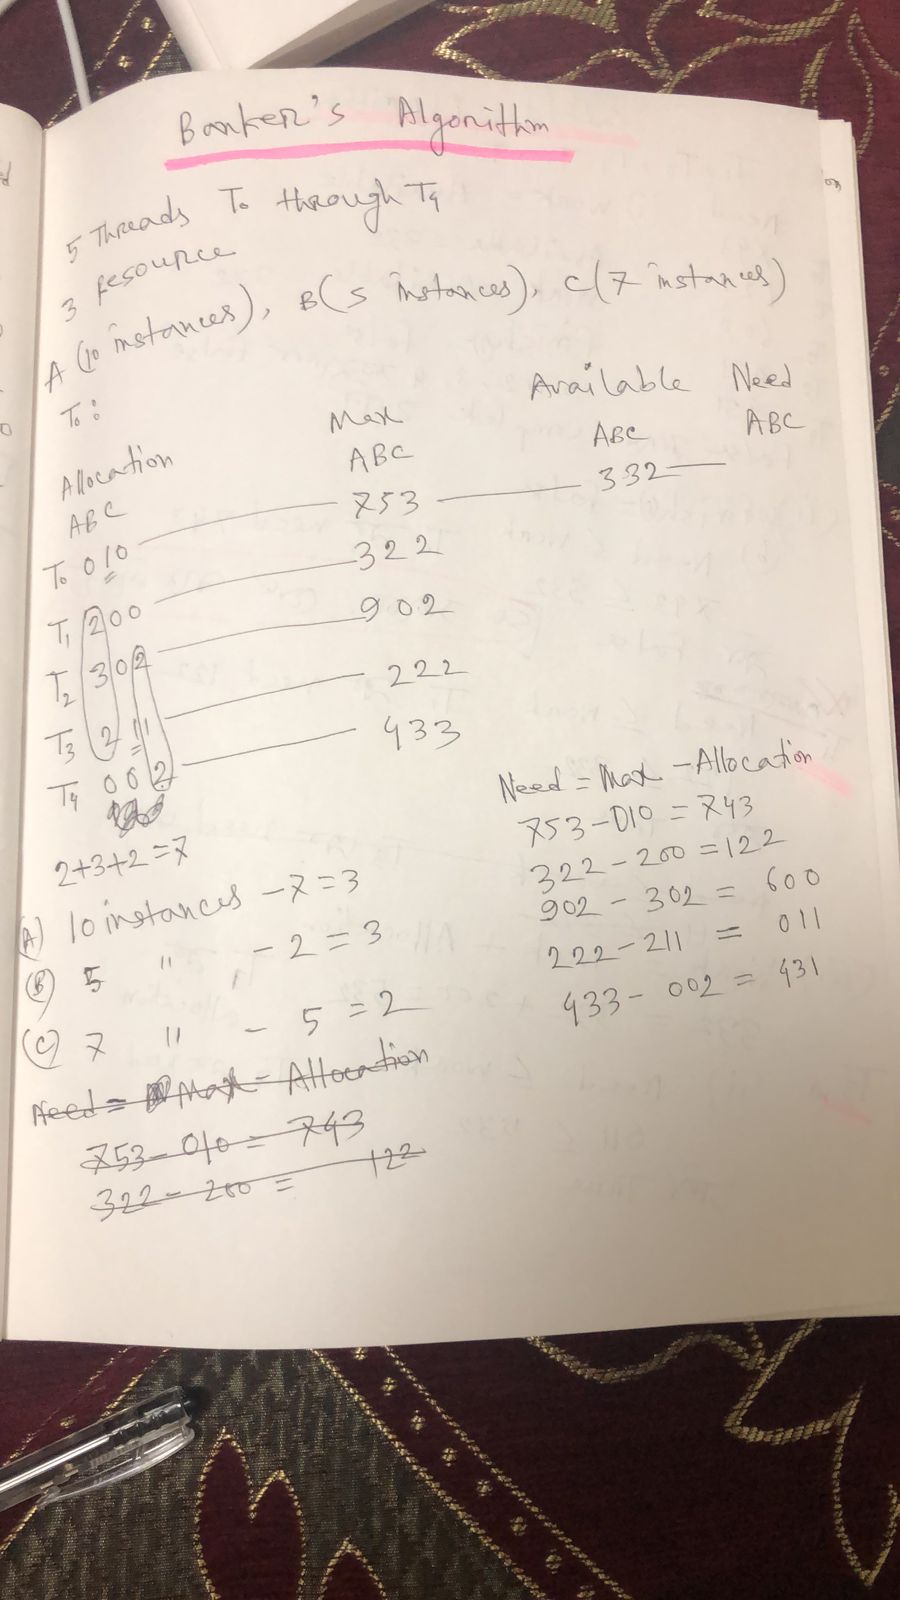 Banker's Algorithm
5 Threads T₀ through T₄
3 resource
A (10 instances), B (5 instances), C (7 instances)
T₀:
Allocation Max Available Need
ABC ABC ABC ABC
T₀ 010 753 332
T₁ 200 322
T₂ 302 902
T₃ 211 222
T₄ 002 433
2+3+2=7
(A) 10 instances - 7 = 3
(B) 5 " - 2 = 3
(C) 7 " - 5 = 2
Need = Max - Allocation
753 - 010 = 743
322 - 200 = 122
Need = Max - Allocation
753 - 010 = 743
322 - 200 = 122
902 - 302 = 600
222 - 211 = 011
433 - 002 = 431